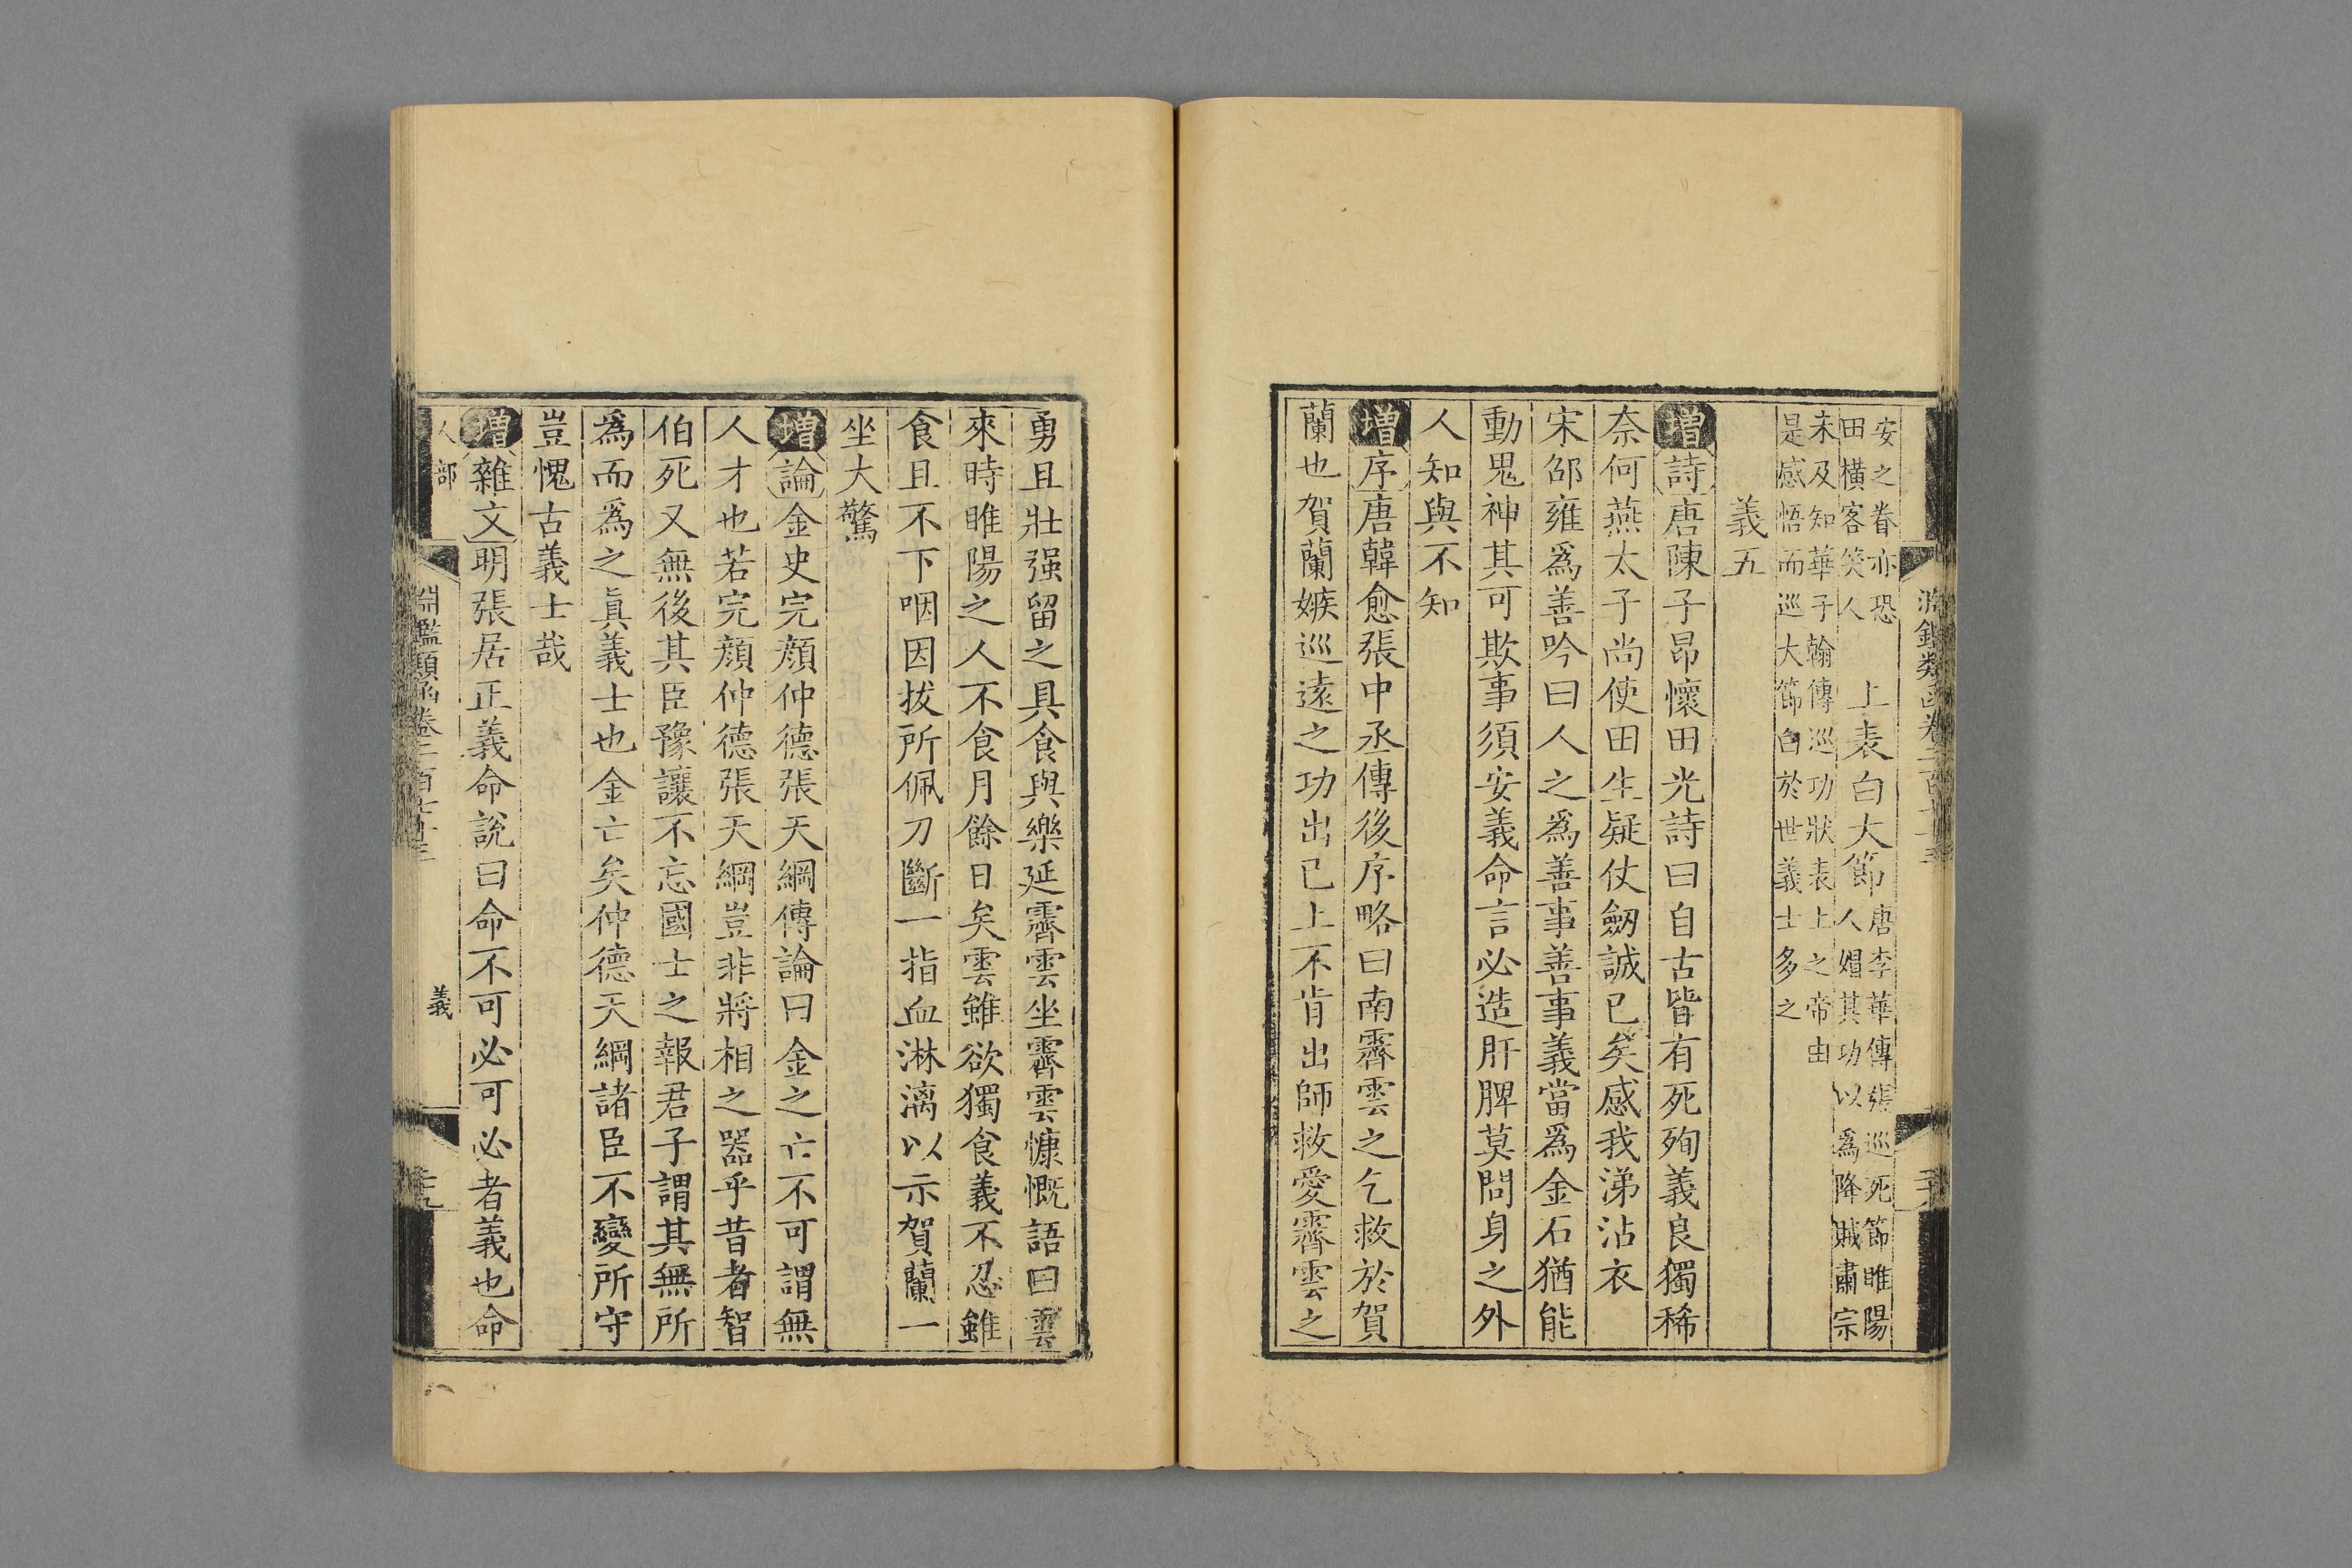 安之眷亦恐
田橫客笑人
上表白大節
唐李華傳張巡死節睢陽
人媢其功以爲降賊肅宗
未及知華子翰傳巡功狀表上之帝由
是感悟而巡大節白於世義士多之
義五
增詩唐陳子昂懷田光詩曰自古皆有死殉義良獨稀
奈何燕太子尚使田生疑仗劒誠已矣感我涕沾衣
宋邵雍爲善吟曰人之爲善事善事義當爲金石猶能
動鬼神其可欺事須安義命言必造肝脾莫問身之外
人知與不知
增序唐韓愈張中丞傳後序略曰南霽雲之乞救於賀
蘭也賀蘭嫉巡遠之功出已上不肯出師救愛霽雲之
勇且壯强留之具食與樂延霽雲坐霽雲慷慨語曰雲
來時睢陽之人不食月餘日矣雲雖欲獨食義不忍雖
食且不下咽因拔所佩刀斷一指血淋漓以示賀蘭一
坐大驚
增論金史完顔仲德張天綱傳論曰金之亡不可謂無
人才也若完顔仲德張天綱豈非將相之器乎昔者智
伯死又無後其臣豫讓不忘國士之報君子謂其無所
爲而爲之眞義士也金亡矣仲德天綱諸臣不變所守
豈愧古義士哉
增雜文明張居正義命說曰命不可必可必者義也命
人部
淵鑑類函卷二百七十三
義